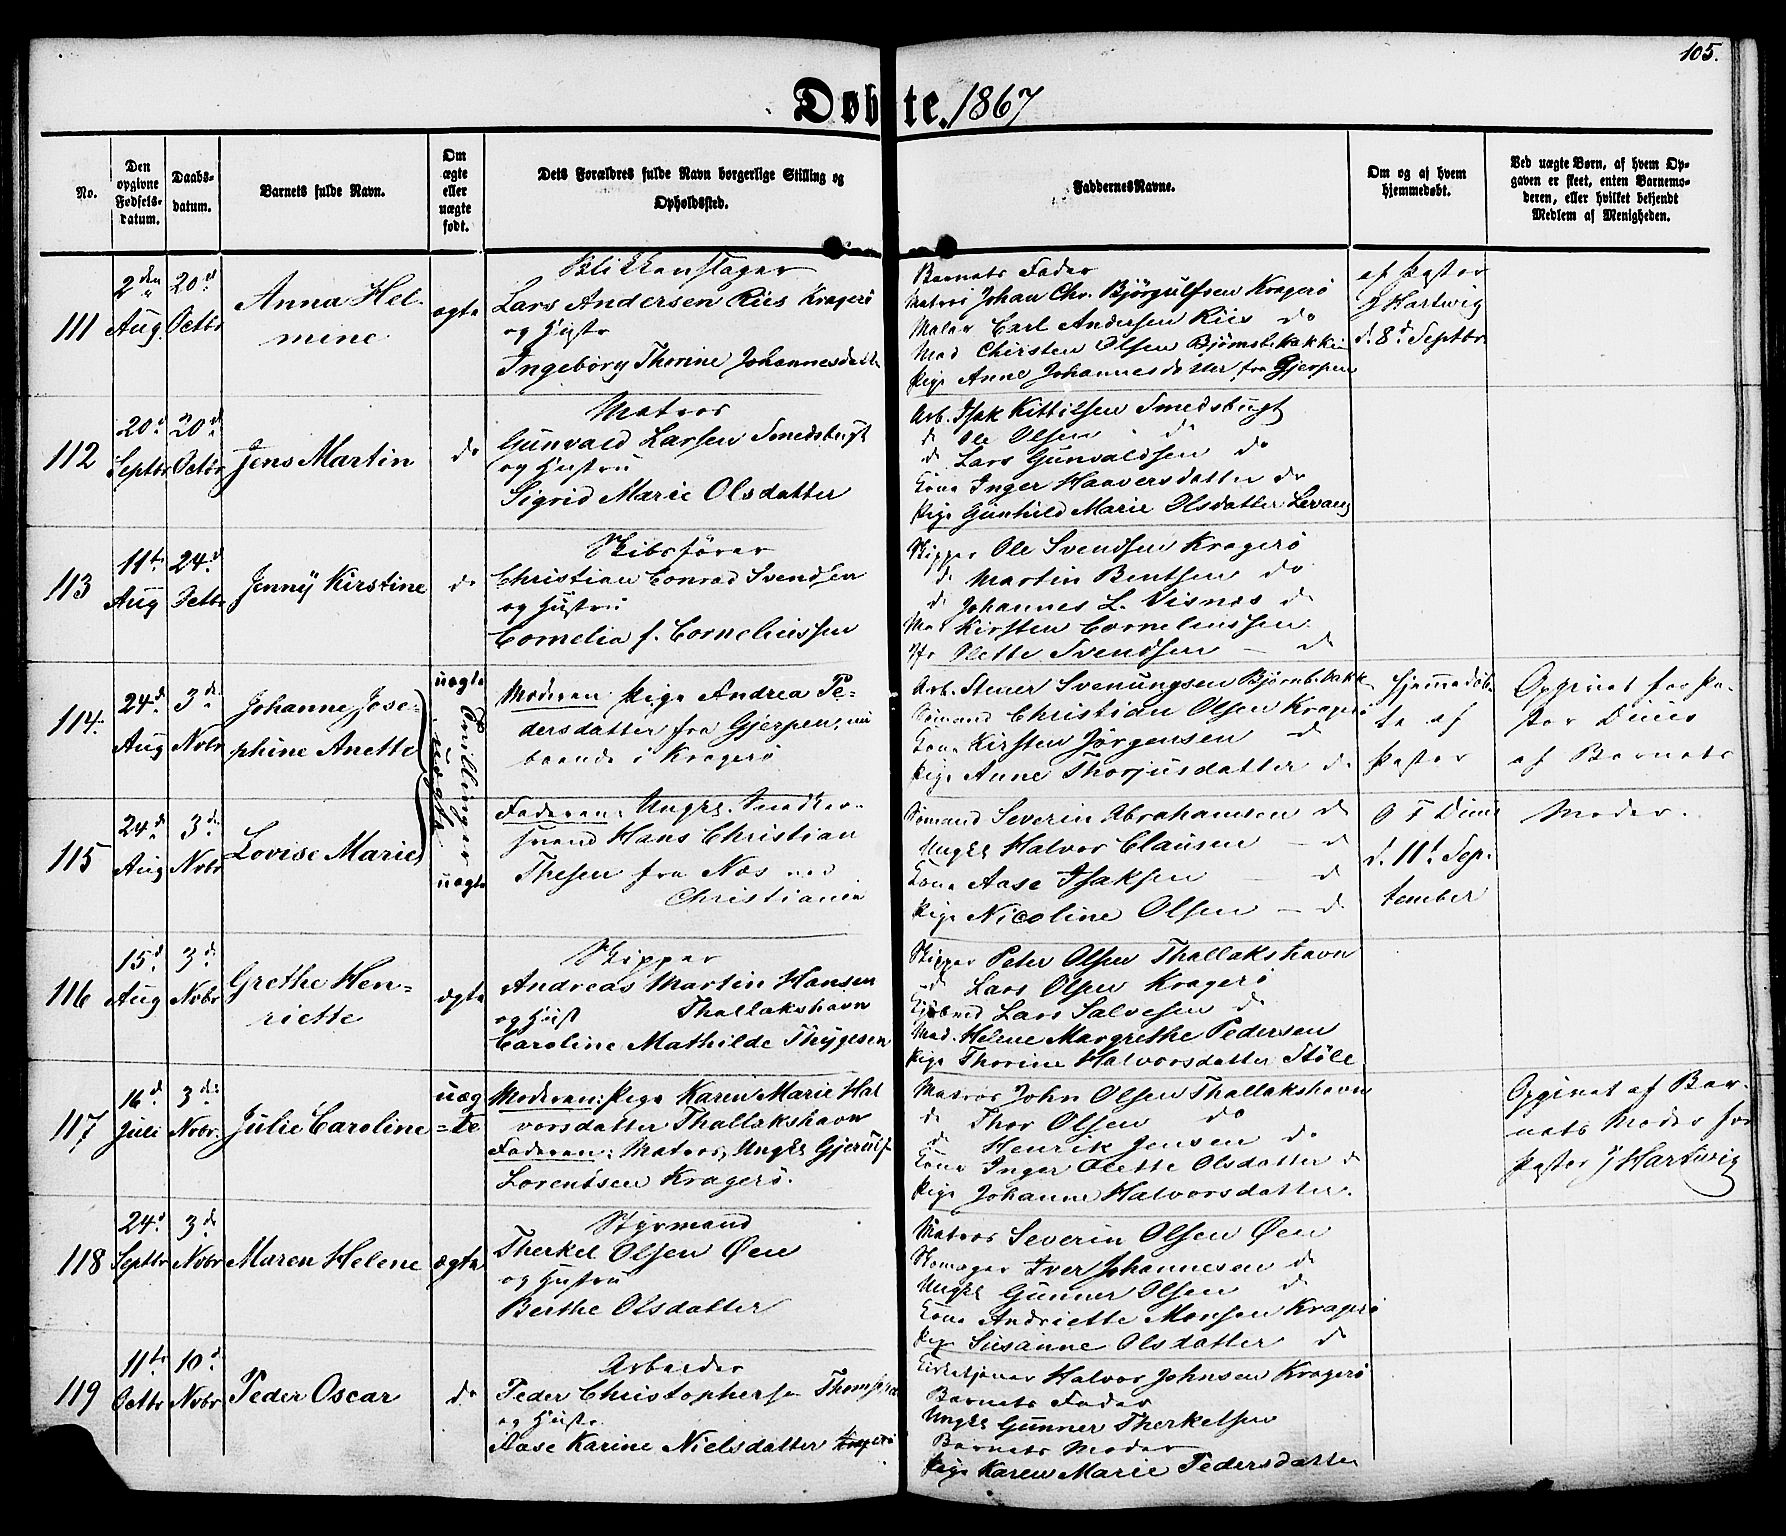 105.
Døbte. 1867
No.
Den opgivne Fødselsdatum.
Daabsdatum.
Barnets fulde Navn.
Om ægte eller uægte født.
Dets Forældres fulde Navn borgerlige Stilling og Opholdssted.
Faddernes Navne.
Om og af hvem hjemmedøbt.
Ved uægte Børn, af hvem Opgaven er skeet, enten Barnemoderen, eller hvilket bekjendt Medlem af Menigheden.
111
2den Aug.
20d Octbr
Anna Hel-
mine
ægte
Blikkenslager
Lars Andersen Riis Kragerö
og Hustr
Ingeborg Thorine Johannesdatt
Barnets Fader
Matros Johan Chr. Björgulfsen Kragerö
Maler Carl Andersen Riis do
Mad Chirsten Olsen Björnsbebakken
Pige Anne Johannesdatter fra Gjerpen
af Pastor
J Hartwig
d. 8d Septbr
112
20d Septbr
20d Octbr
Jens Martin
do
Matros
Gunvald Larsen Smedsbugt
og Hustru
Sigrid Marie Olsdatter
Arb. Isak Kittilsen Smedsbugt
d Ole Olsen d
d Lars Gunvaldsen do
Kone Inger Haaversdatter do
Pige Gunhild Marie Olsdatter Levang
113
11te Aug
24d Octbr
Jenny Kirstine
do
Skibsförer
Christian Conrad Svendsen
og Hustru
Cornelia f. Corneliussen
Skipper Ole Svendsen Kragerö
d Martin Bentsen do
d Johannes L. Visnes do
Mad Kirsten Corneliussen
Jfr Olette Svendsen — d
114.
24d Aug
3d Novbr
Johanne Jose-
phine Anette
uægte
Tvillinger
uægte
Moderen: Pige Andrea Pe-
dersdatter fra Gjerpen, nu
boende i Kragerö
Arb. Stener Svenungsen Björnsbebakk
Sömand Christian Olsen Kragerö
Kone Kirsten Jörgensen d
Pige Anne Thorjusdatter d
hjemmedöb-
te af
Pastor
Opgivet for Pa-
stor Dines
af Barnets
115
24d Aug
3d Novbr
Lovise Marie
uægte
Faderen: Ungkl. Snedker-
svend Hans Christian
Thesen fra Næs ved
Christiania
Sömand Severin Abrahamsen d
Ungkl Halvor Clausen — d
Kone Aase Isaksen — d
Pige Nicoline Olsen — d
d. 11t Sep-
tember
Moder.
116
15d Aug
3d Novbr
Grethe Hen-
riette
ægte
Skipper
Andreas Martin Hansen
og Hust Thallakshavn
Caroline Mathilde Thygesen
Skipper Peter Olsen Thallakshavn
d Lars Olsen Kragerö
Lars Salvesen d
Mad. Helene Margrethe Pedersen
Pige Thorine Halvorsdatter Stöle
117
16d Juli
3d Novbr.
Julie Caroline
uæg
=te
Moderen: Pige Karen Marie Hal
vorsdatter Thallakshavn
Faderen: Matros, Ungkl Gjerulf
Lorentsen Kragerö.
Matros John Olsen Thallakshavn
d Thor Olsen do
d Henrik Jensen do
Kone Inger Olette Olsdatter d
Pige Johanne Halvorsdatter.
Opgivet af Bar-
nets Moder for
Pastor J Hartwig
118
24d Septbr
3d Novbr
Maren Helene
ægte
Styrmand
Therkel Olsen Øen
og Hustru
Berthe Olsdatter
Matros Severin Olsen Øen
Skomager Iver Johannesen d
Ungkl Gunner Olsen d
Kone Andriette Monsen Kragerö
Pige Susanne Olsdatter d
119
11te Octbr
10d Novbr
Peder Oscar
do
Arbeider
Peder Christophersen
og Hustr
Aase Karine Nielsdatter Kragerö
Kirketjener Halvor Johnsen Kragerö
Barnets Fader
Ungkl Gunner Therkelsen
Barnets Moder
Pige Karen Marie Pedersdatter